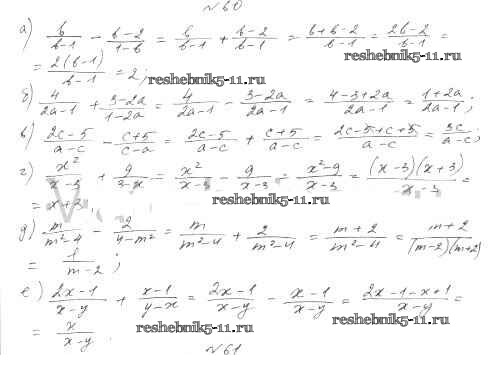 №60
а) b/(b-1) - (b-2)/(1-b) = b/(b-1) + (b-2)/(b-1) = (b+b-2)/(b-1) = (2b-2)/(b-1) =
= 2(b-1)/(b-1) = 2;
reshebnik5-11.ru
reshebnik5-11.ru
б) 4/(2a-1) + (3-2a)/(1-2a) = 4/(2a-1) - (3-2a)/(2a-1) = (4-3+2a)/(2a-1) = (1+2a)/(2a-1);
в) (2c-5)/(a-c) - (c+5)/(c-a) = (2c-5)/(a-c) + (c+5)/(a-c) = (2c-5+c+5)/(a-c) = 3c/(a-c)
г) x²/(x-3) + 9/(3-x) = x²/(x-3) - 9/(x-3) = (x²-9)/(x-3) = (x-3)(x+3)/(x-3) =
= x+3.
reshebnik5-11.ru
д) m/(m²-4) - 2/(4-m²) = m/(m²-4) + 2/(m²-4) = (m+2)/(m²-4) = (m+2)/((m-2)(m+2))
= 1/(m-2);
е) (2x-1)/(x-y) + (x-1)/(y-x) = (2x-1)/(x-y) - (x-1)/(x-y) = (2x-1-x+1)/(x-y) =
= x/(x-y).
reshebnik5-11.ru
reshebnik5-11.ru
№61